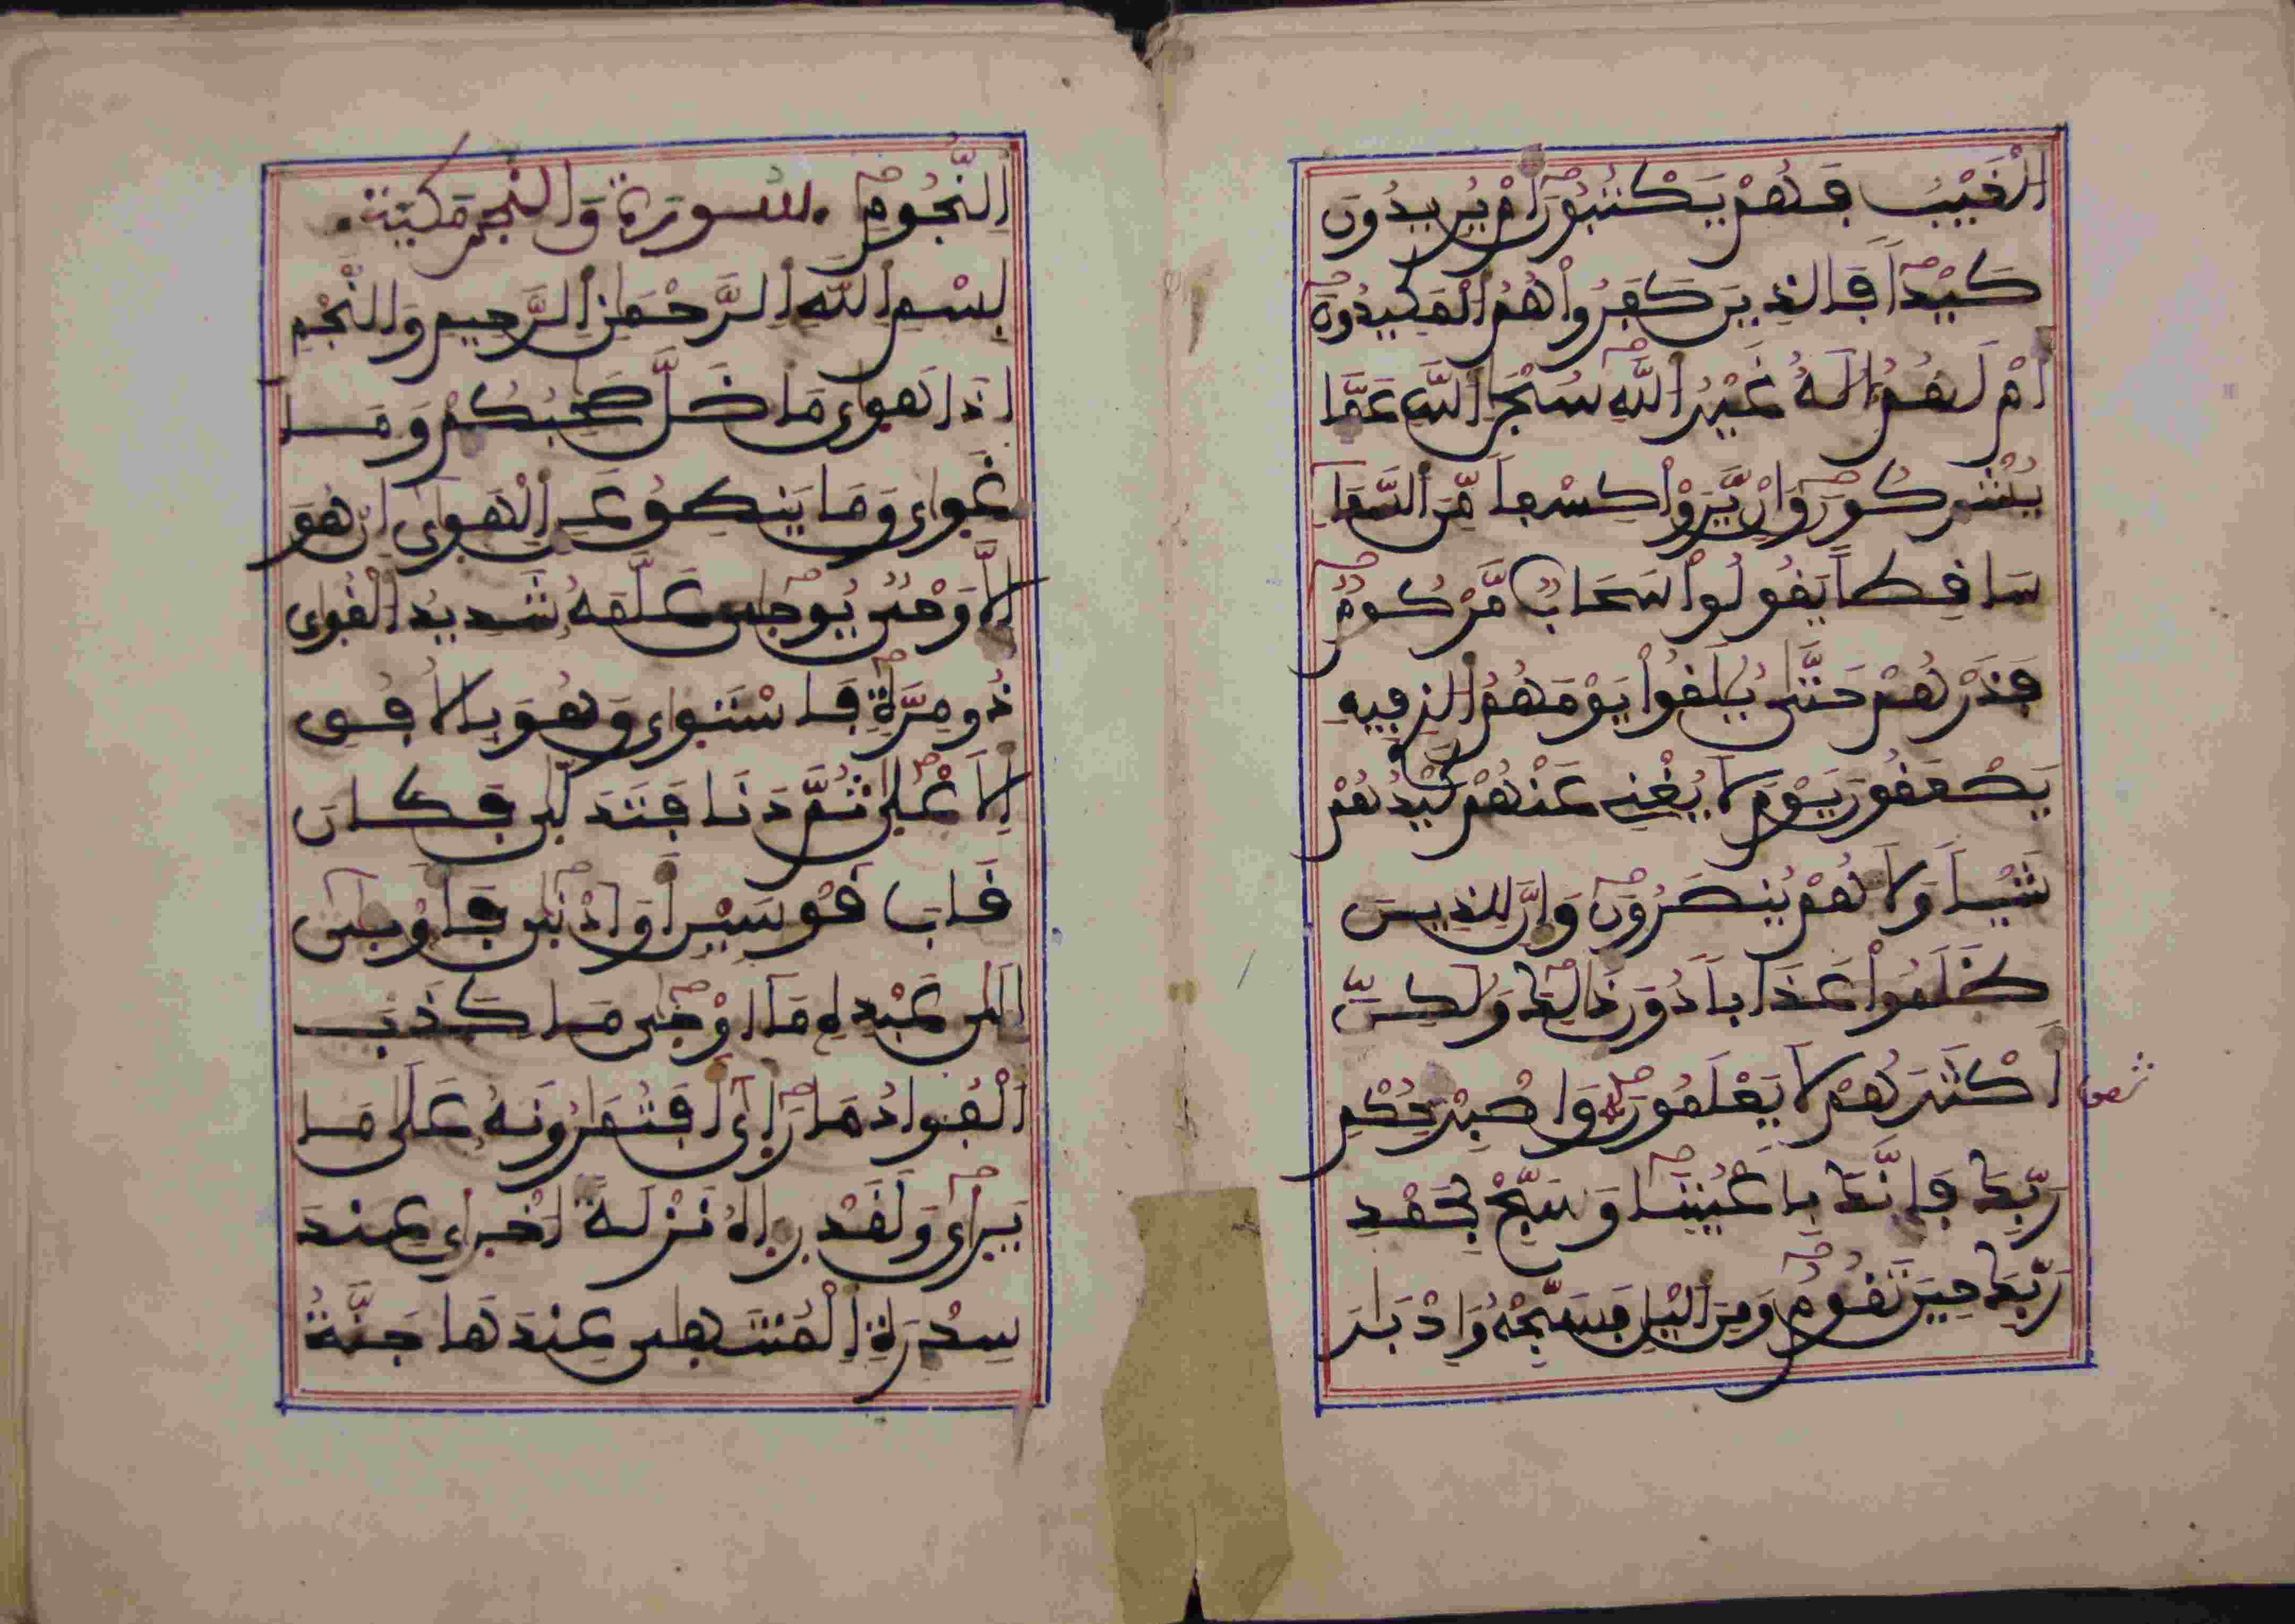 الْغَيْبُ فَهُمْ يَكْتُبُونَ أَمْ يُرِيدُونَ
كَيْداً فَالذِينَ كَفَرُواْ هُمُ الْمَكِيدُونَ
أَمْ لَهُمُ إِلَهٌ غَيْرُ اللَّهِ سُبْحَنَ اللَّهِ عَمَّا
يُشْرِكُونَ وَإِنْ يَّرَوْاْ كِسْفاً مِّنَ السَّمَا
سَافِطاً يَقُولُواْ سَحَابٌ مَّرْكُومٌ
فَذَرْهُمْ حَتَّى يُلَقُواْ يَوْمَهُمُ الذِى فِيهِ
يَصْعَقُونَ يَوْمَ لَا يُغْنِى عَنْهُمْ كَيْدُهُمْ
شَيْئاً وَلَا هُمْ يُنصَرُونَ وَإِنَّ لِلذِينَ
ظَلَمُواْ عَذَاباً دُونَ ذَلِكَ وَلَكِنَّ
أَكْثَرَهُمْ لَا يَعْلَمُونَ وَاصْبِرْ لِحُكْمِ
ثمن
رَبِّكَ فَإِنَّكَ بِأَعْيُنِنَا وَسَبِّحْ بِحَمْدِ
رَبِّكَ حِينَ تَقُومُ وَمِنَ الَّيْلِ فَسَبِّحْهُ وَإِدْبَارَ
النُّجُومِ سورة والنجم مكية
بِسْمِ اللَّهِ الرَّحْمَنِ الرَّحِيمِ وَالنَّجْمِ
إِذَا هَوَى مَا ضَلَّ صَحِبُكُمْ وَمَا
غَوَى وَمَا يَنطِقُ عَنِ الْهَوَى إِنْ هُوَ
إِلَّا وَحْىٌ يُوحَى عَلَّمَهُ شَدِيدُ الْقُوَى
ذُو مِرَّةٍ فَاسْتَوَى وَهُوَ بِالْأُفُقِ
الْأَعْلَى ثُمَّ دَنَا فَتَدَلَّى فَكَانَ
قَابَ قَوْسَيْنِ أَوَ ادْنَى فَأَوْحَى
إِلَى عَبْدِهِ مَا أَوْحَى مَا كَذَبَ
الْفُؤَادُ مَا رَأَى أَفَتُمَرُونَهُ عَلَى مَا
يَرَى وَلَقَدْ رَءَاهُ نَزْلَةً اخْرَى عِندَ
سِدْرَةِ الْمُنتَهَى عِندَهَا جَنَّةُ